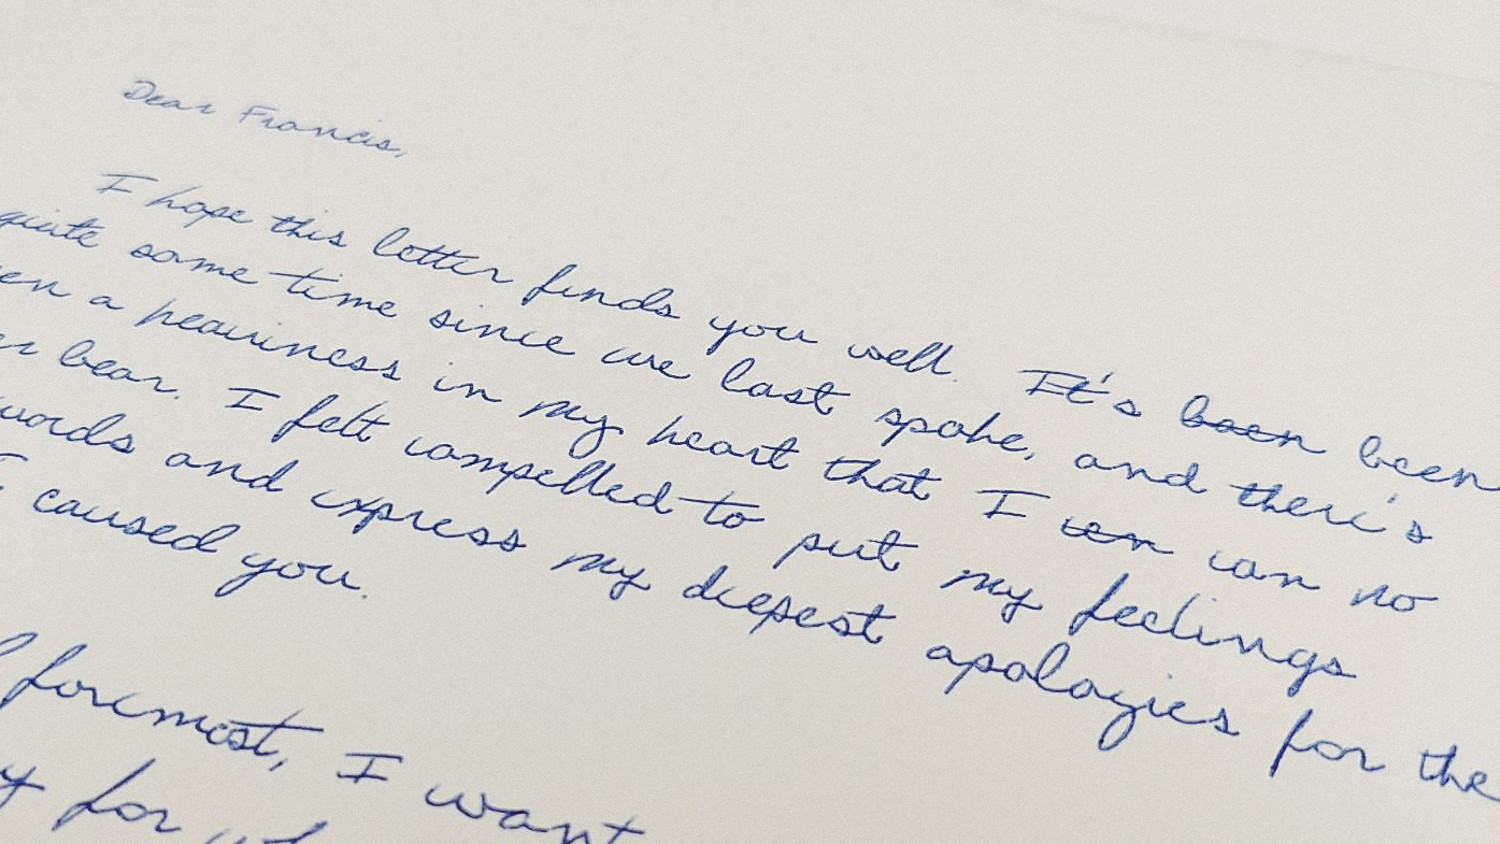 Dear Francis,
I hope this letter finds you well. It's been been
quite some time since we last spoke, and there's
a heaviness in my heart that I can can no
bear. I felt compelled to put my feelings
words and express my deepest apologies for the
I caused you.
foremost, I want
for